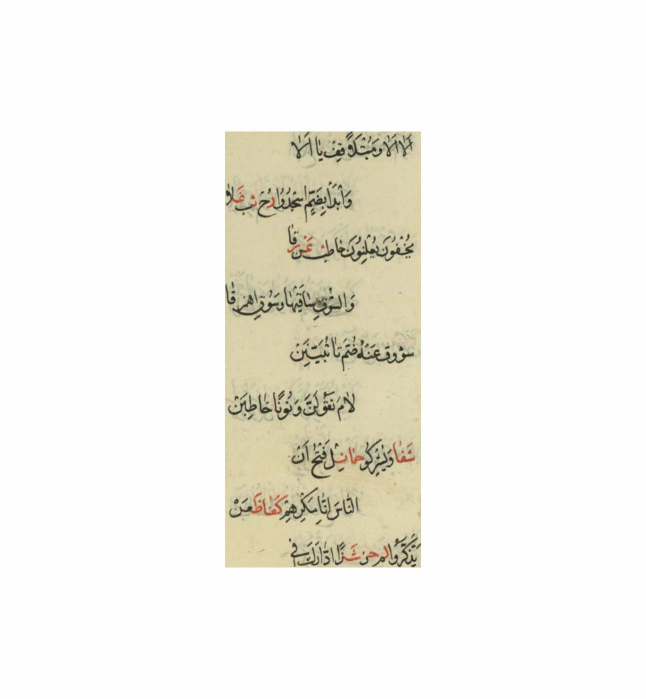 اَلَا اَلَا وَمُبْتَلًى قِفْ يَا اَلَا
وَابْدَأْ بِضَمِّ اسْجُدُوا رُحْ ثِبْ غَلَا
يُخْفُونَ يُعْلِنُونَ خَاطِبْ عَنْ رَقَا
وَالسُّوقِ سَاقَيْهَا وَسُوقِ اهْمِزْ
سُؤُوقِ عَنْهُ ضَمَّ تَا تُبَيِّتَنْ
لَامَ تَقُولَنَّ وَنُونًا خَاطِبَنْ
شَفَا وَيُشْرِكُوا حِمَا نَلْ فَتْحَ اَنْ
النَّاسَ اِنَّا مَكْرِهِمْ كَفَا ظَعَنْ
يَذَّكَّرُوا لَمْ حُزْ شَذًا ادَّارَكَ فِي